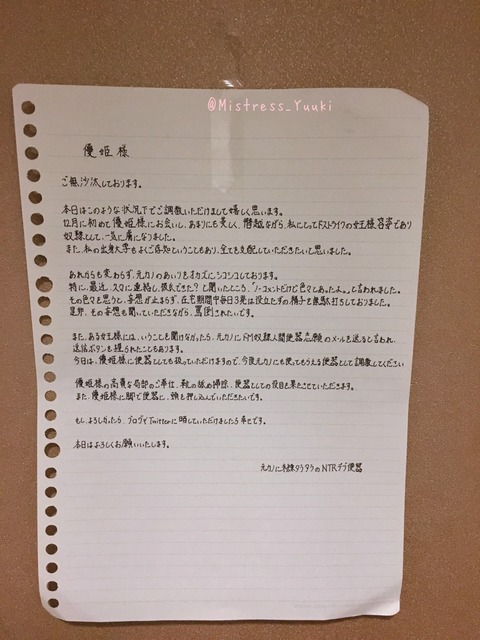 @Mistress_Yuuki
優姫様
ご無沙汰しております。
本日はこのような状況下でご調教いただけまして嬉しく思います。
12月に初めて優姫様にお会いし、あまりにも美しく、僭越ながら、私にとってドストライクの女王様容姿であり
奴隷として、一気に虜になりました。
また、私の出身大学もよくご存知ということもあり、全てを支配していただきたいと思いました。
あれからも変わらず、元カノのあいりをオカズにシコシコしております。
特に、最近、久々に連絡し、彼氏できた?と聞いたところ、「ノーコメントだけど色々とあったよ。」と言われました。
その色々を思うと、妄想が止まらず、在宅期間中毎日3発は役立たずの精子を無駄打ちしておりました。
是非、その妄想も聞いていただきながら、罵倒されたいです。
また、ある女王様には、いうことを聞けなかったら、元カノにドM奴隷人間便器志願のメールを送ると言われ、
送信ボタンも握られたこともあります。
今日は、優姫様に便器としても扱っていただけますので、今後元カノにも使ってもらえる便器として調教してください
優姫様の高貴な局部のご奉仕、靴の舐め掃除、便器としての役目を果たさせていただきます。
また、優姫様に脚で便器に、頭を押し込んでいただきたいです。
もし、よろしかったら、ブログやTwitterに晒していただけましたら幸せです。
本日はよろしくお願いいたします。
元カノに未練タラタラのNTRデブ便器